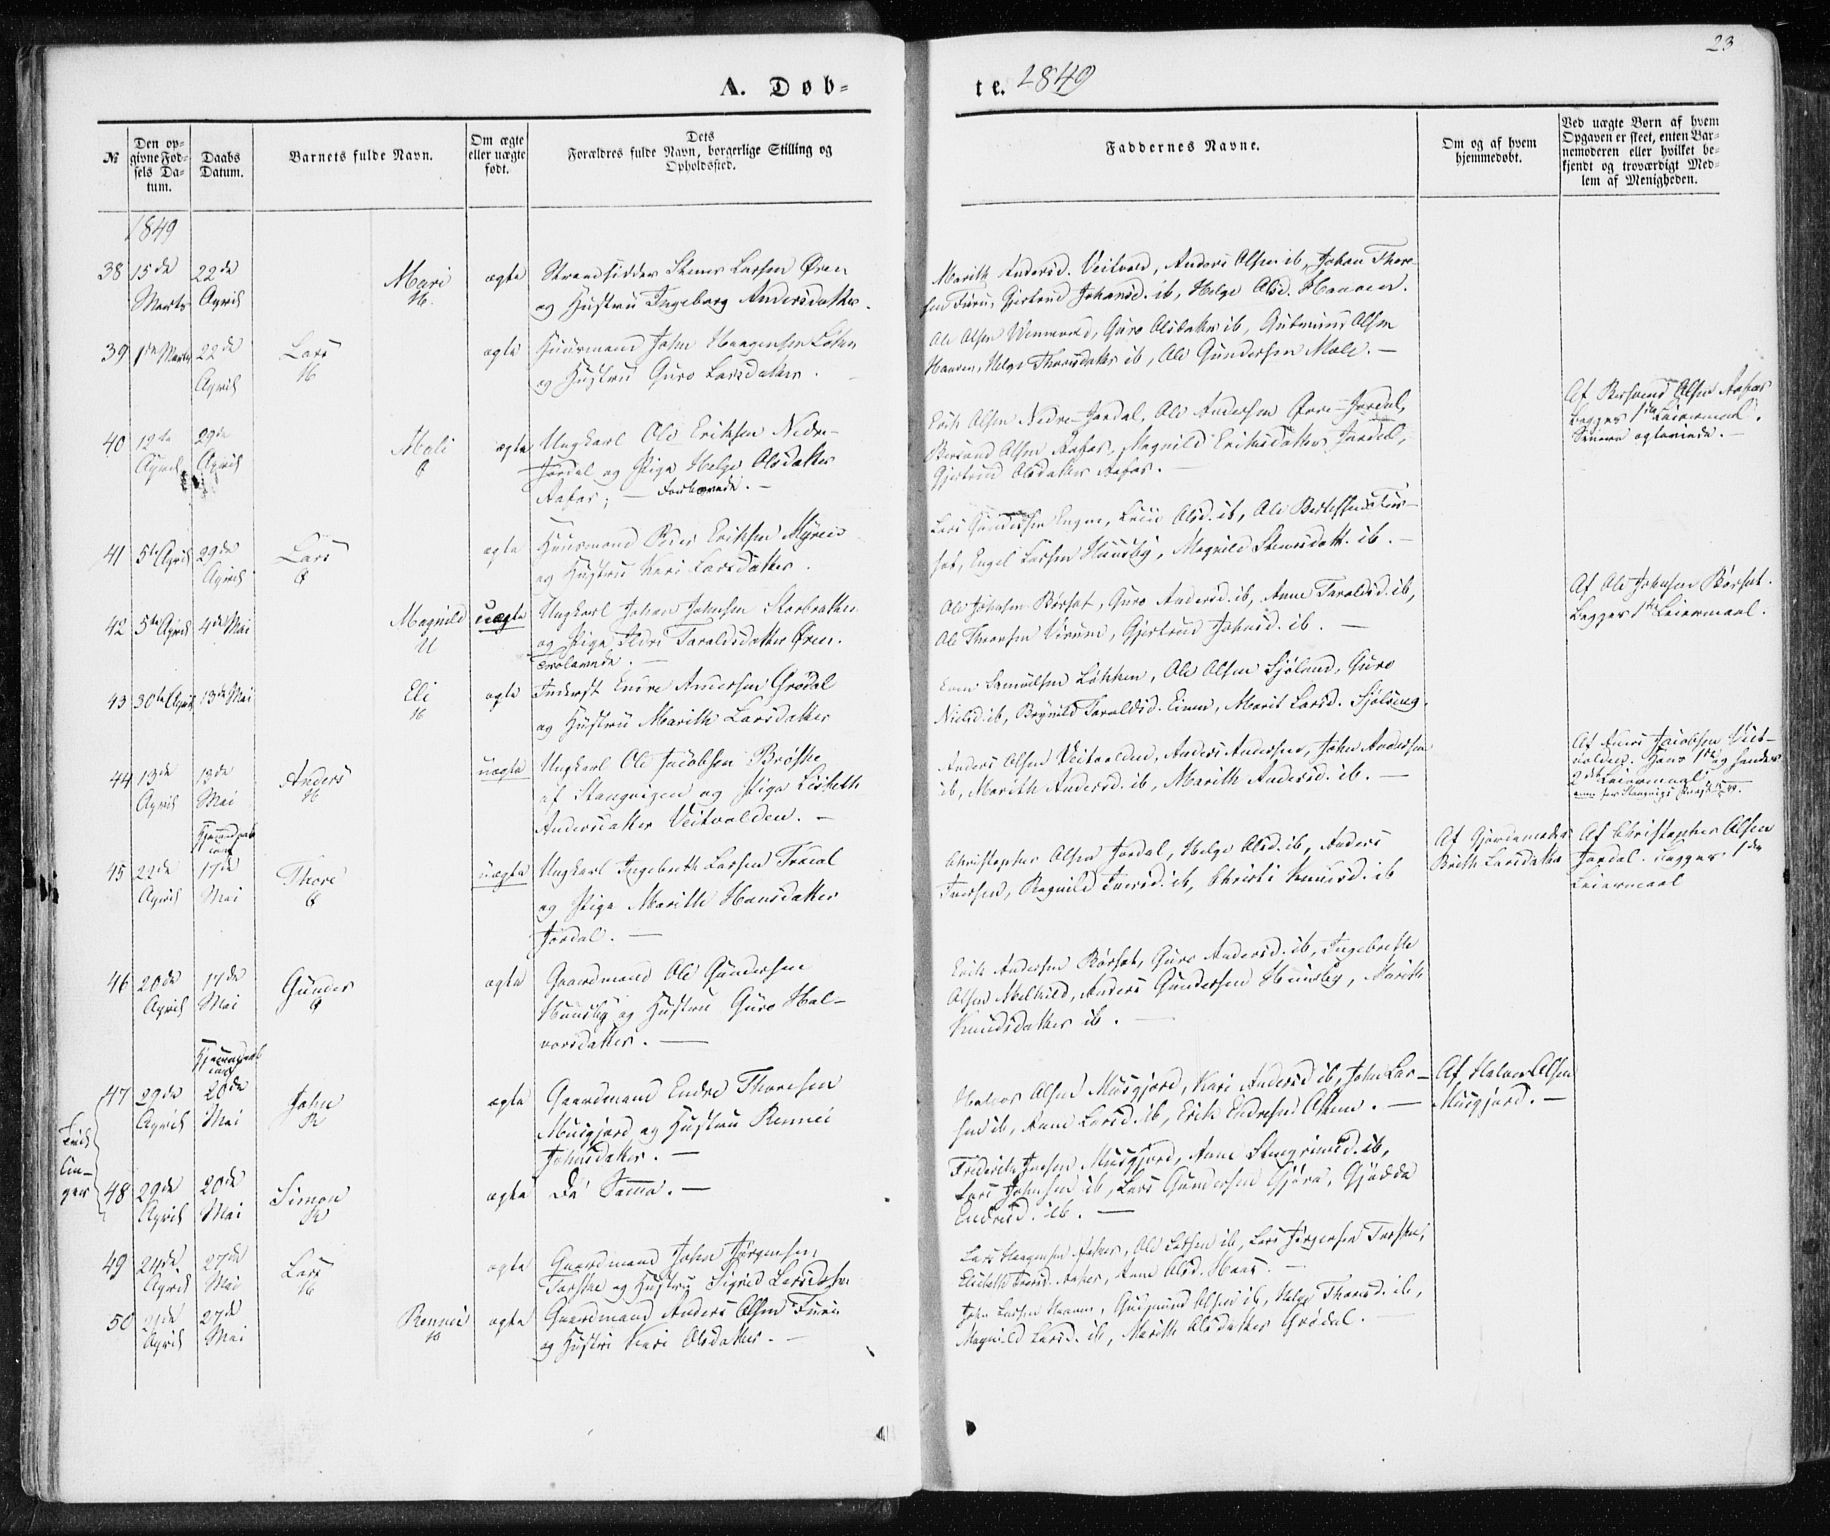 23
A. Døb-
te. 1849
№
Den op-
givne Fød-
sels Da-
tum.
Daabs
Datum.
Barnets fulde Navn.
Om ægte
eller uægte
født.
Dets
Forældres fulde Navn, borgerlige Stilling og
Opholdssted.
Faddernes Navne.
Om og af hvem
hjemmedøbt.
Ved uægte Børn af hvem
Opgaven er skeet, enten Bar-
nemoderen eller hvilket be-
kjendt og troværdigt Med-
lem af Menigheden.
1849
38 15de Marts 22de April Mari ægte
Strandsidder Stener Larsen Øren
og Hustru Ingeborg Andersdatter.
Marith Andersd. Veitvold, Anders Olsen ib, Johan Thore-
sen Furu, Gjertrud Johansd. ib, Helge Olsd. Haaven.
39 1ste Marts 22de April Lars ægte
Huusmand John Haagensen
og Hustru Guro Larsdatter.
Ole Olsen, Guro Olsdatter ib, Gudmund Olsen
Haaven, Helge Thoresdatter ib, Ole Gundersen Mole.
40 12te April 29de April Mali ægte
Ungkarl Ole Eriksen Nedre-
Jordal og Pige Helge Olsdatter
Aafar; - Trolovede. -
Erik Olsen Nedre-Jordal, Ole Andersen Øvre-Jordal,
Bersvend Olsen Aafar, Magnild Eriksdatter Jordal,
Gjertrud Olsdatter Aafar. -
Af Bersvend Olsen Aafar
Begges 1ste Leiermaal.
Senere ægteviede. -
41 5te April 29de April Lars ægte
Huusmand Peder Eriksen Myren
og Hustru Kari Larsdatter.
Lars Gundersen Engen, Olsd. ib, Ole
Engel Larsen Huusby, Magnild Stenersdatt. ib. -
42 5te April 4de Mai Magnild uægte
Ungkarl Johan Johnsen Storbratten
og Pige Ildri Taraldsdatter Øren.
Trolovede. -
Ole Johnsen Børset, Guro Andersd. ib, Anne Taraldsd. ib,
Ole Thoresen Virum, Gjertrud Johnsd. ib. -
Af Ole Johnsen Børset.
Begges 1ste Leiermaal.
43 30te April 13de Mai Eli ægte
Inderst Endre Andersen Grødal
og Hustru Marith Larsdatter
Samuelsen Løkken, Ole Olsen Sjøland, Guro
Nielsd. ib, Brynild Taraldsd., Marit Larsd.
44 13de April 13de Mai Anders uægte
Ungkarl Ole Jacobsen Brøske
af Stangvigen og Pige Lisbeth
Andersdatter Veitvolden. -
Anders Olsen Veitvolden, Anders Andersen, John Andersen
ib, Marith Andersd. ib, Marith Andersd. ib. -
Af Jacobsen Veit-
volden. Hans 1ste og hendes
2det Leiermaal.
45 22de April Hjemmedøbt 17de Mai Thore uægte
Ungkarl Ingebrith Larsen
og Pige Marith Hansdatter
Jordal. -
Christopher Olsen Jordal, Helge Olsd. ib, Anders
Iversen, Ragnild Iversd. ib, Christi Knudsd. ib
Af Gjordemoder
Berith Larsdatter
Af Christopher Olsen
Jordal. Begges 1ste
Leiermaal
46 20de April 17de Mai Gunder ægte
Gaardmand Ole Gundersen
Huusby og Hustru Guro Hal-
vorsdatter. -
Erik Andersen Børset, Guro Andersd. ib, Ingebrith
Olsen, Anders Gundersen Huusby, Marith
Knudsdatter ib. -
Erik
47 29de April Hjemmedøbt 20de Mai John ægte
Gaardmand Endre Thoresen
Musgjerd og Hustru Rennei
Johnsdatter. -
Halvor Olsen Musgjerd, Kari Andersd. ib, John Lar-
sen ib, Anne Larsd. ib, Erik Endresen
Af Halvor Olsen
Musgjerd. -
48 29de April 20de Mai Simon ægte
De Samme. -
Frederik Jensen Musgjerd, Anne ib,
Lars Johnsen ib, Lars Gundersen Gjøra, Gjødde
Endresd. ib. -
49 24de April 27de Mai Lars ægte
Gaardmand John Jørgensen
Torske og Hustru Sigrid Larsdatter
Lars Haagensen, Ole Larsen ib, Lars Jørgensen Torske,
Elisabeth, Anne Olsd. Haas. -
50 21de April 27de Mai Rennei ægte
Gaardmand Anders Olsen Furu
og Hustru Kari Olsdatter. -
John Larsen Haaven, Gudmund Olsen ib, Helge Thoresd. ib,
Magnild Larsd. ib, Marith Olsdatter Grødal. -